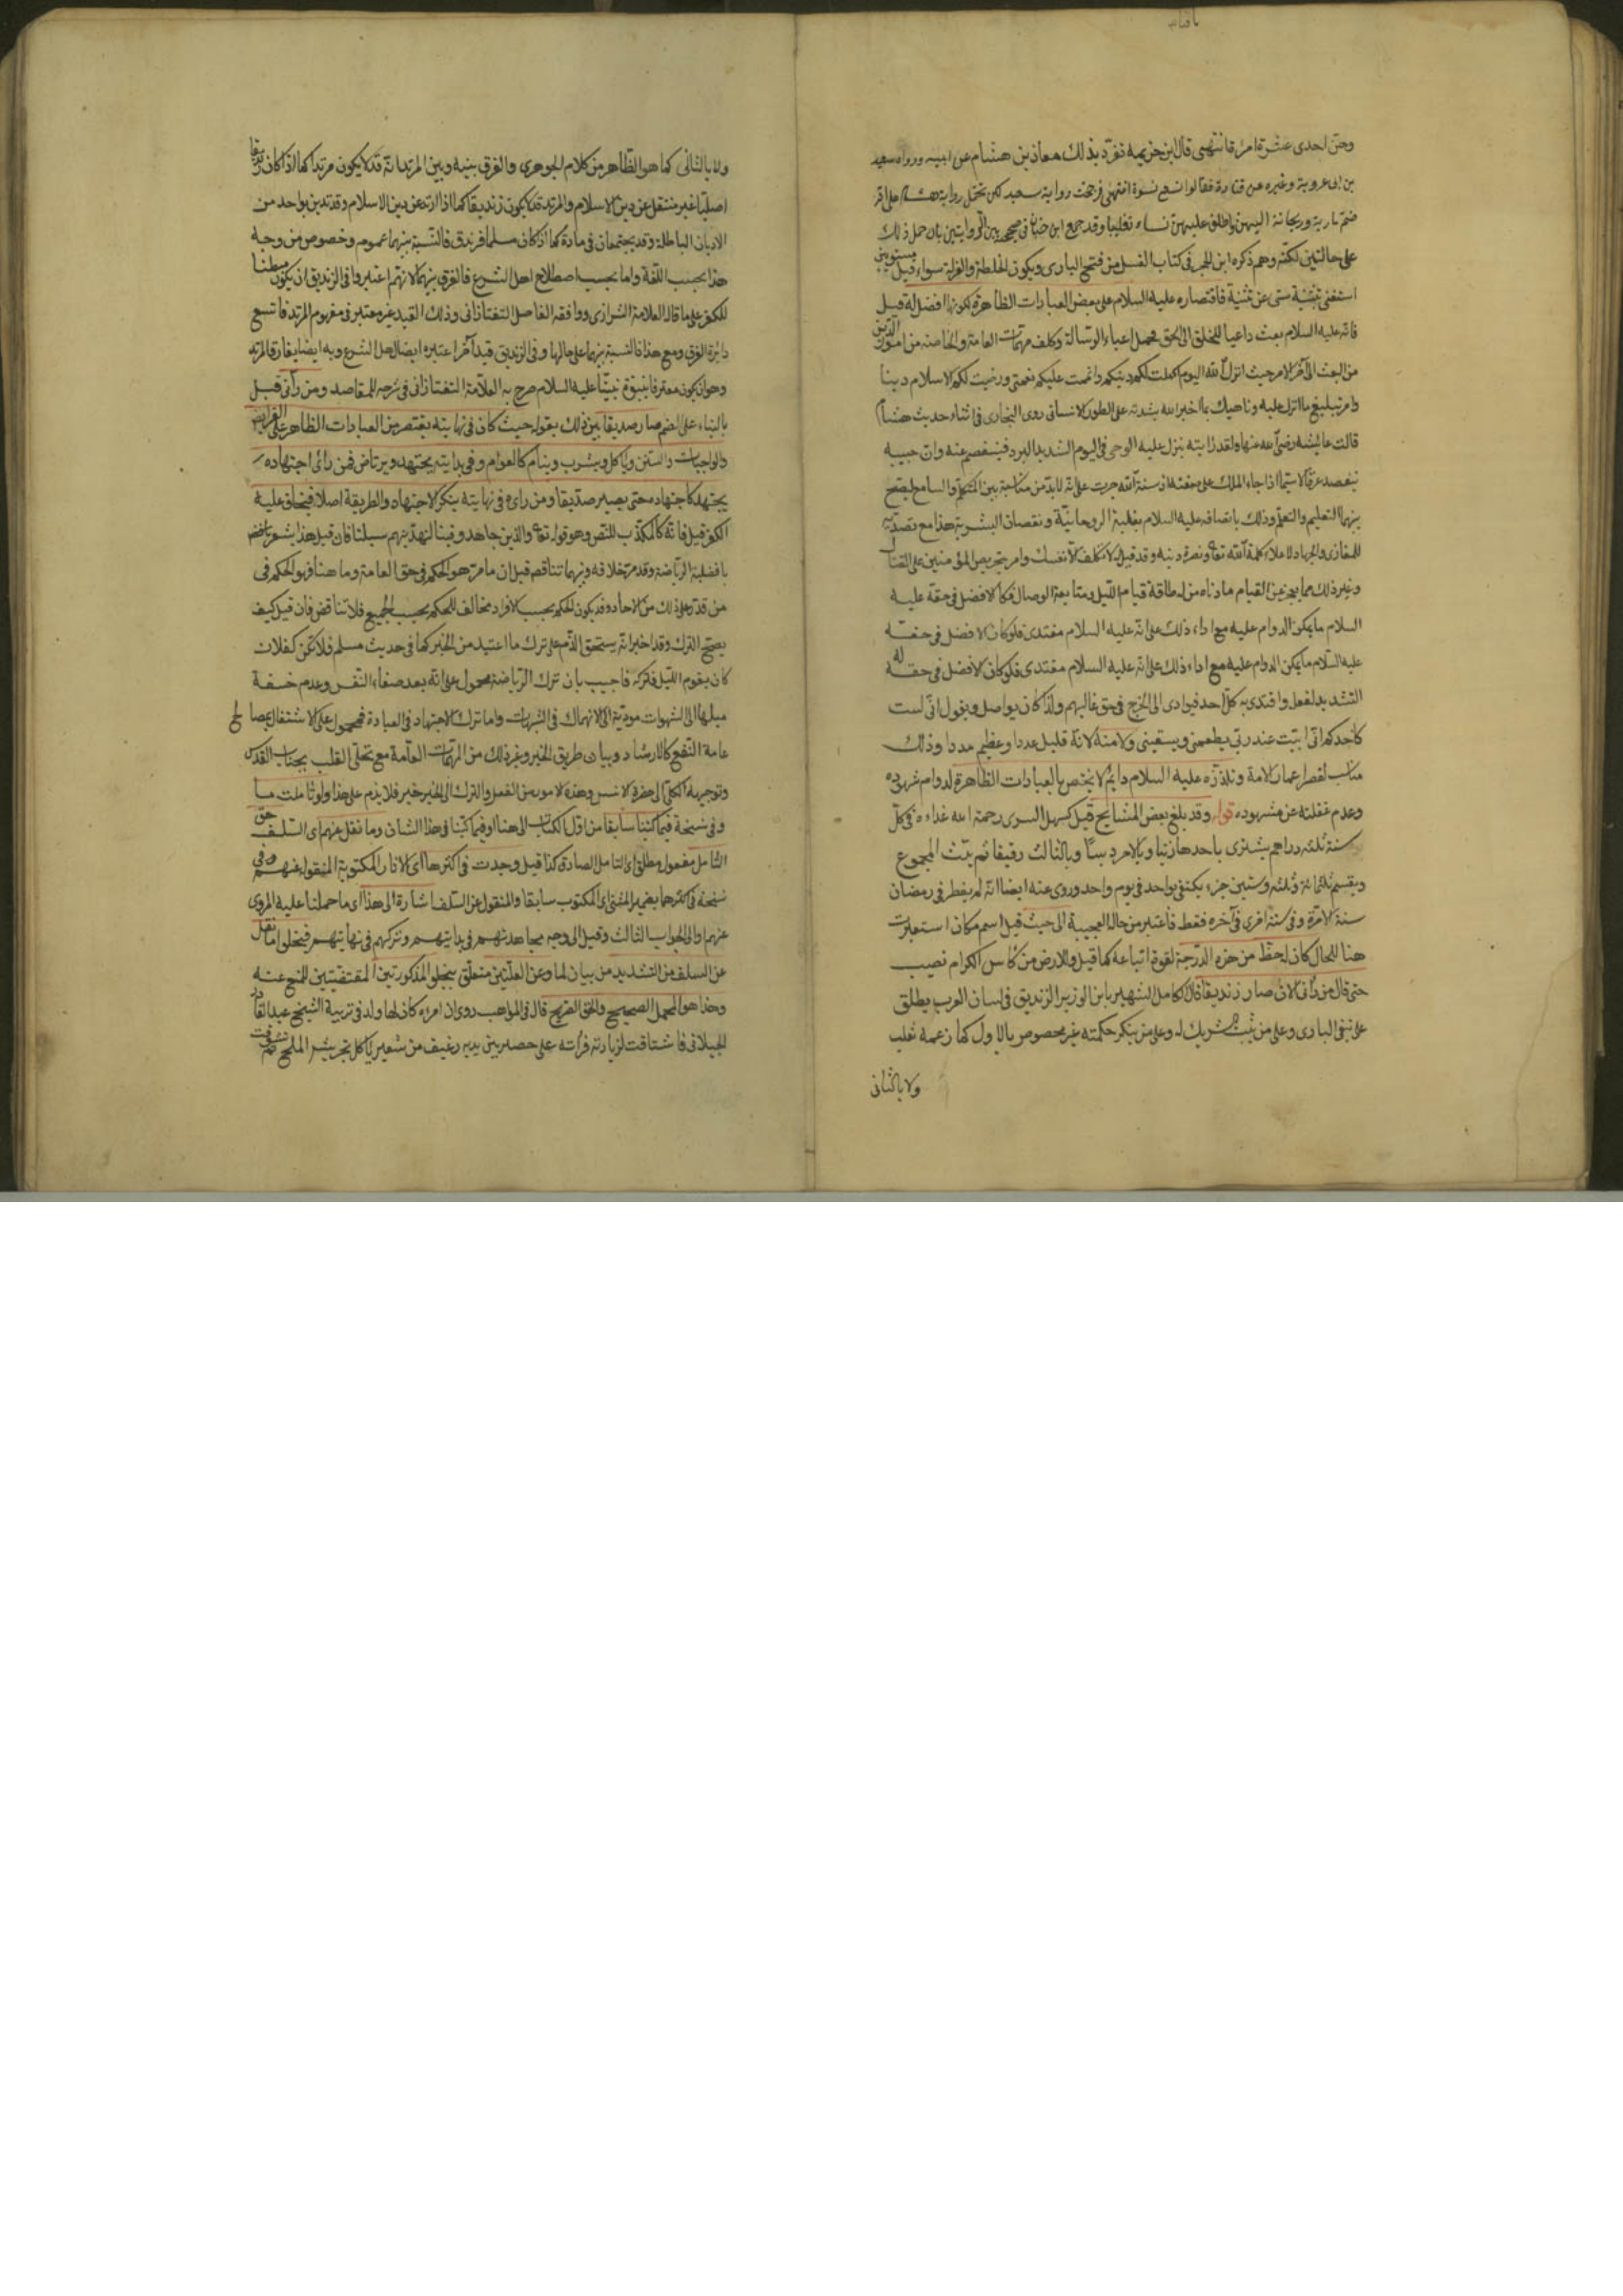 وهن احدى عشرة امرأة انتهى قال ابن خزيمة تفرد بذلك معاذ بن هشام عن ابيه ورواه سعيد
بن ابى عروبة وغيره عن قتادة فقالوا تسع نسوة انتهى فرجحت رواية سعيد لكن تحتمل رواية هشام على
ضم مارية وريحانة اليهن واطلق عليهن نساء تغليبا وقد جمع ابن حبان فى صحيحه بين الروايتين بان حمل ذلك
على حالتين لكنه وهم ذكره ابن الحجر فى كتاب الغسل من فتح البارى ويكون الخلطة والعزلة سواء قيل مستويين
استغنى بتثنية سى عن تثنية فاقتصاره عليه السلام على بعض العبادات الظاهرة لكونها افضل له قيل
فانه عليه السلام بعث داعيا للخلق الى الحق محمل اعباء الرسالة وكلف مهمات العامة والخاصة من امور الدين
من البعث الى آخر الامر حيث انزل الله اليوم اكملت لكم دينكم واتممت عليكم نعمتى ورضيت لكم الاسلام دينا
وامر تبليغ ما انزل عليه وناهيك بما اخبر الله بشدته على الطور الانسانى روى البخارى فى اثناء حديث هشام
قالت عايشه رضى الله عنها ولقد رايته ينزل عليه الوحى فى اليوم الشديد البرد فيفصم عنه وان جبينه
ليتفصد عرقا لاسيما اذا جاء الملك على صفته اذ سنة الله جرت على انه لابد من مناسبة بين المتكلم والسامع ليصح
بينهما التعليم والتعلم وذلك باتصافه عليه السلام بغلبة الروحانية ونقصان البشرية هذا مع تصديه
للمغازى والجهاد لاعلاء كلمة الله تع ونصرة دينه وقد قيل له لا تكلف الا نفسك وامر بتحريص المؤمنين على القتال
وغير ذلك مما يعجز عن القيام بادناه من له طاقة قيام الليل ومتابعة الوصال فكان الافضل فى حقه عليه
السلام ما يمكن الدوام عليه مع اداء ذلك على انه عليه السلام مقتدى فلو كان الافضل فى حقه
عليه السلام ما يمكن الدوام عليه مع اداء ذلك على انه عليه السلام مقتدى فلو كان الافضل فى حقه له
التشديد لفعل واقتدى به كل احد فيؤدى الى الحرج فى حق غالبهم ولذا كان يواصل ويقول انى لست
كاحدكم انى ابيت عند ربى يطعمنى ويسقينى ولامته لانه قليل عددا وعظيم مددا وذلك
مناسب لقصر اعمار الامة وتلذذه عليه السلام دايم لا يختص بالعبادات الظاهرة لدوام شهوده
وعدم غفلته عن مشهوده قوله وقد بلغ بعض المشايخ قيل كسهل التسرى رحمة الله غداءه فى كل
سنة ثلثه دراهم يشترى باحدها زيتا وبالآخر دبسا وبالثالث دقيقا ثم يلت المجموع
ويقسم ثلثمائة وثلثه وستين جزء يكتفى بواحد فى يوم واحد وروى عنه ايضا انه لم يفطر فى رمضان
سنة الا مرة وفى سنة اخرى فى آخره فقط فاعتبر من حاله العجيبة الى حيث قيل اسم مكان استعيرت
هنا للحال كان له حظ من هذه الدرجة لقوة اتباعه كما قيل وللارض من كأس الكرام نصيب
حتى قال من رآنى الان صار زنديقا قال الكامل الشهير بابن الوزير الزنديق فى لسان العرب يطلق
على نفى البارى وعلى من يثبت شريك له وعلى من ينكر حكمته غير مخصوص بالاول كما زعمه ثعلب
ولا بالثانى
ولا بالثانى كما هو الظاهر من كلام الجوهرى والفرق بينه وبين المرتد انه قد لا يكون مرتدا كما اذا كان زنديقا
اصليا غير منتقل عن دين الاسلام والمرتد قد لا يكون زنديقا كما اذا ارتد عن دين الاسلام وقد تدين بواحد من
الاديان الباطلة وقد يجتمعان فى مادة كما اذا كان مسلما فزندق فالنسبة بينهما عموم وخصوص من وجه
هذا بحسب اللغة واما بحسب اصطلاح اهل الشرع فالفرق بينهما لانهم اعتبروا فى الزنديق ان يكون مبطنا
للكفر على ما قاله العلامة الشيرازى ووافقه الفاضل التفتازانى وذلك القيد غير معتبر فى مفهوم المرتد فاتسع
دائرة الفرق ومع هذا فالنسبة بينهما على حالها وفى الزنديق قيدا آخر اعتبره ايضا اهل الشرع وبه ايضا يفارق المرتد
وهو ان يكون معترفا بنبوة نبينا عليه السلام صرح به العلامة التفتازانى فى شرحه للمقاصد ومن رآنى قبل
بالبناء على الضم صار صديقا بين ذلك بقوله حيث كان فى نهايته يقتصر من العبادات الظاهر على الفرايض
والواجبات والسنن وياكل ويشرب وينام كالعوام وفى بدايته يجتهد ويرتاض فمن رأى اجتهاده
يجتهد كاجتهاده حتى يصير صديقا ومن راى فى نهايته ينكر الاجتهاد والطريقة اصلا فيخاف عليه
الكفر قيل فانه كالمكذب للنص وهو قوله تع والذين جاهدوا فينا لنهدينهم سبلنا فان قيل هذا يشعر
بافضلية الرياضة وقد مر خلافه وبينهما تناقض قيل ان ما مر هو الحكم فى حق العامة وما هنا فهو الحكم فى
من قدر على ذلك من الاحاد وقد يكون الحكم بحسب الافراد مخالف للحكم بحسب الجميع فلا تناقض فان قيل كيف
يصح الترك وقد اخبر انه يستحق الذم على ترك ما اعتيد من الخير كما فى حديث مسلم فلا تكن كفلان
كان يقوم الليل فتركه فاجيب بان ترك الرياضة محمول على انه بعد صفاء النفس وعدم خسفة
ميلها الى الشهوات مودية الى الانهماك فى الشهوات واما ترك الاجتهاد فى العبادة فمحمول على الاشتغال بمصالح
عامة النفع كالارشاد وبيان طريق الخير وغير ذلك من المهمات العامة مع تخلى القلب بجناب القدس
وتوجيهه الكلى الى حضرة الانس وهذه الامور من الفعل والترك الى الخير خير فلا يذم على هذا ولو تاملت ما
وفى نسخة فيما كتبنا سابقا من اول الكتاب الى هنا او فيما كتبنا فى هذا الشان وما نقل عنهم اى السلف حق
التامل مفعول مطلق اى التامل الصادق كذا قيل وجدت فى اكثرها اى الاثار المكتوبة المنقولة عنهم وفى
نسخة فى اكثرهما بضمير المثنى اى المكتوب سابقا والمنقول عن السلف اشارة الى هذا اى ما حملنا عليه المروى
عنهم والى الجواب الثالث وقيل الى وجه مجاهدتهم فى بدايتهم وتركهم فى نهايتهم فيخلوا ما نقل
عن السلف من التشديد من بيان لما وعن العلتين متعلق بيخلو المذكورتين المقتضيتين للمنع عنه
وهذا هو المحمل الصحيح والحق الصريح قال فى المواهب روى ان امراة كان لها ولد فى تربية الشيخ عبد القادر
الجيلانى فاشتاقت لزيارته فرأته على حصير بين يديه رغيف من شعير ياكل بجريش الملح